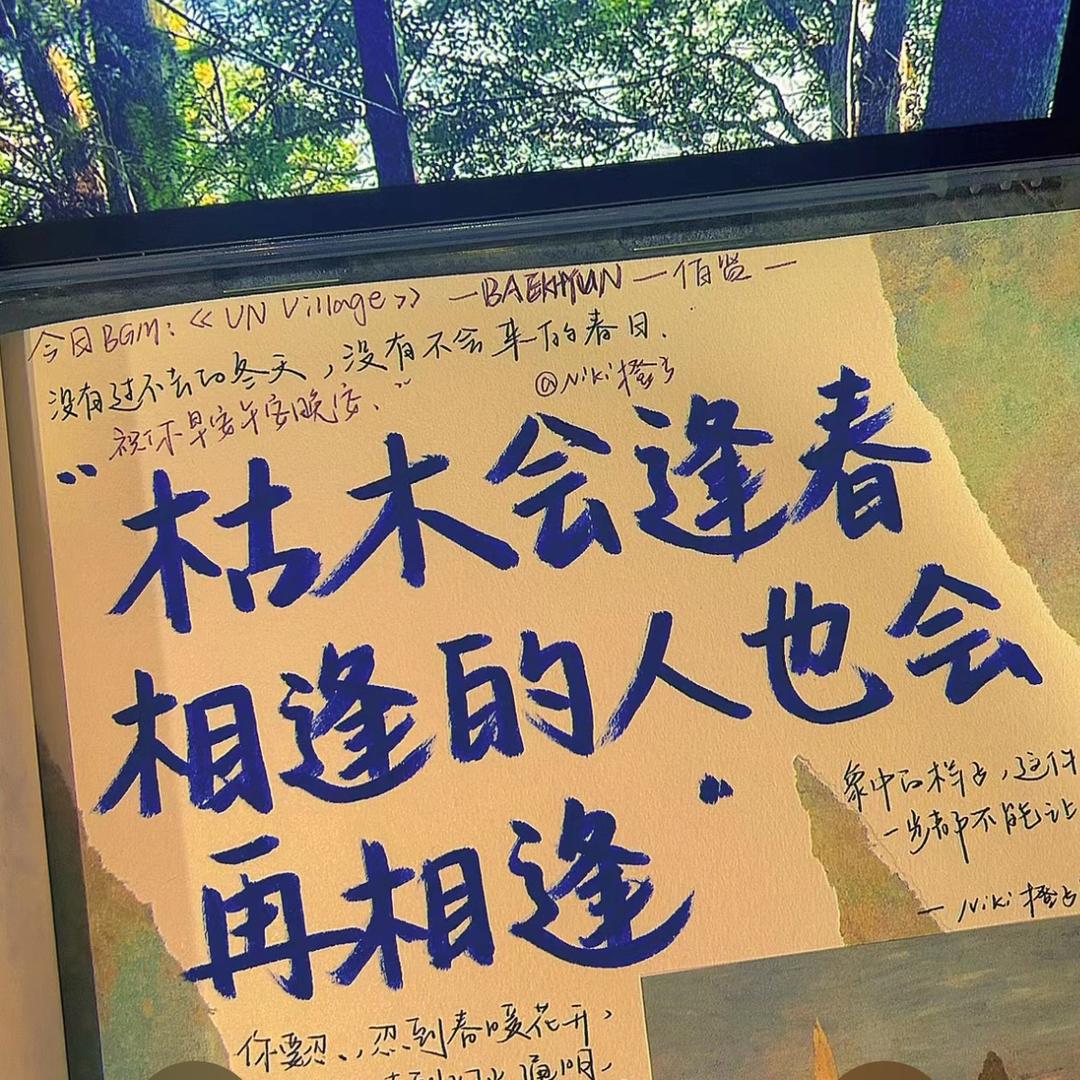 今日BGM:《UN Village》—BAEKHYUN—伯贤—
没有过不去的冬天，没有不会来的春日.
祝你早安午安晚安.
@Niki橙子
“枯木会逢春
相逢的人也会
再相逢.”
象中的样子，这件
一步都不能让
— Niki橙子
你要忍、忍到春暖花开，
通明、